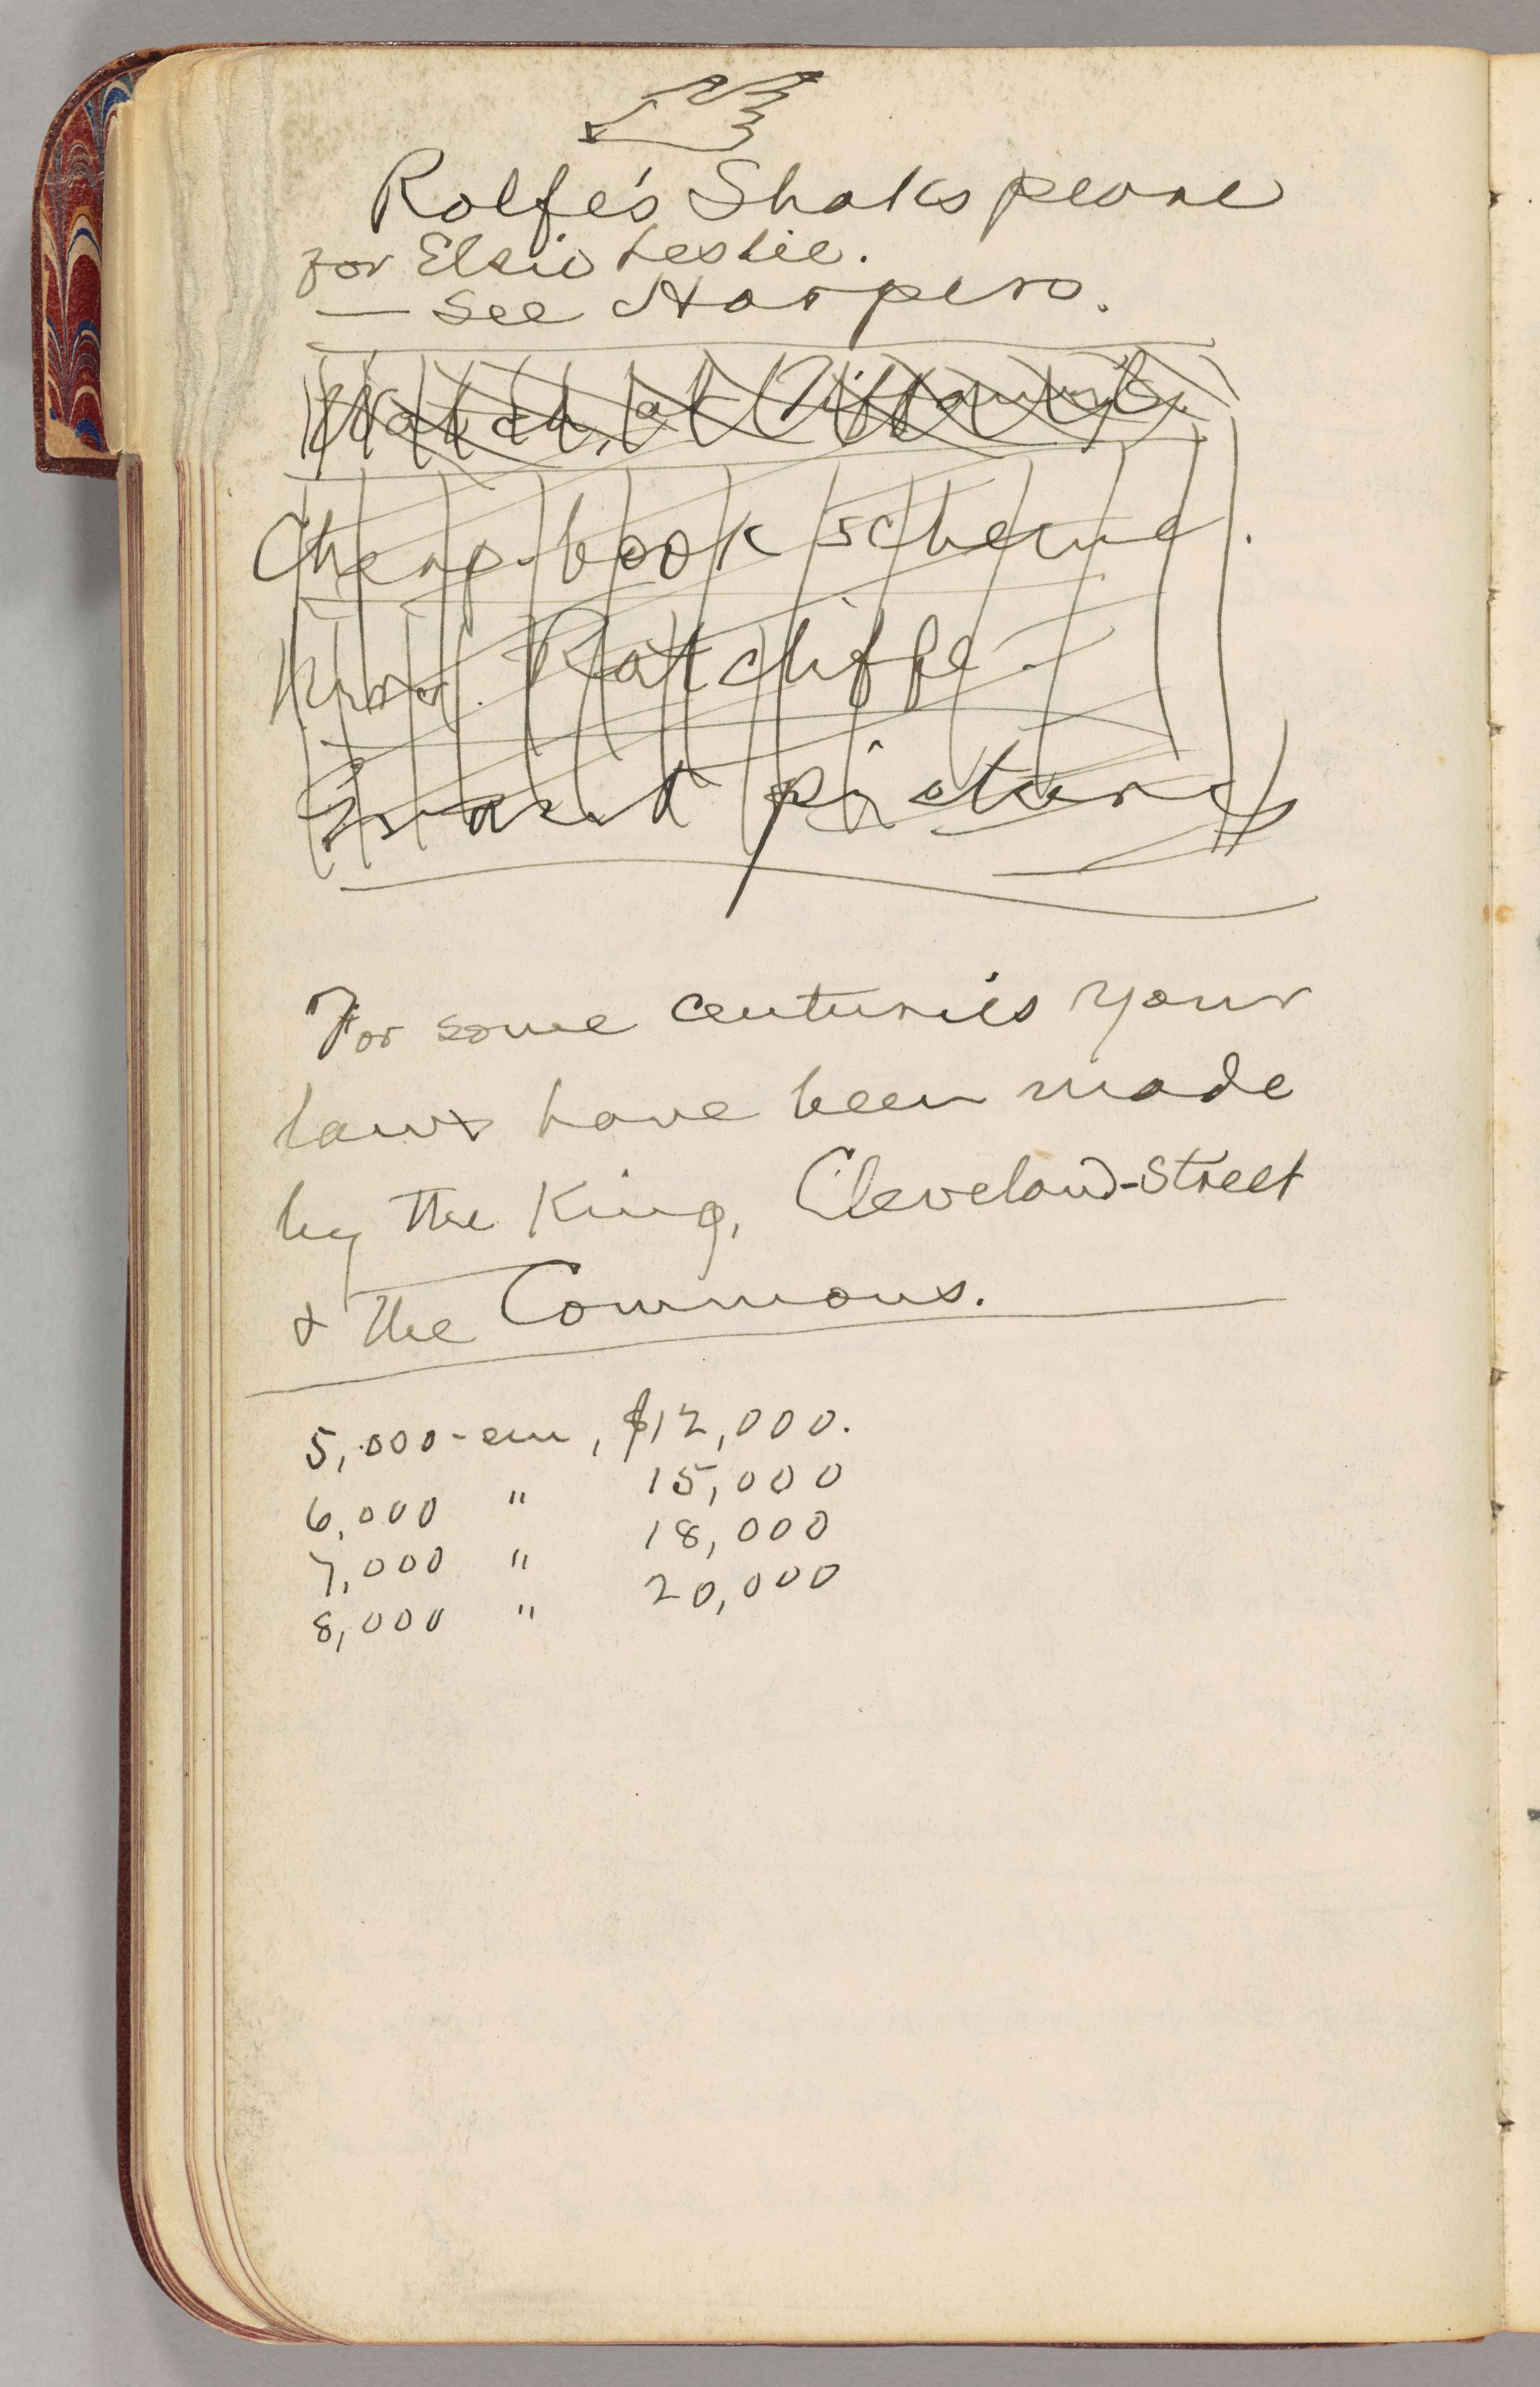 Rolfe's Shakspeare
for Elsie Leslie.
— See Harpers.
Watch, at Tiffany's.
Cheap-book scheme.
Ratcliffe.
pictures
For some centuries your
laws have been made
by the King, Cleveland-Street
& the Commons.
5,000-em, $12,000.
6,000 " 15,000
7,000 " 18,000
8,000 " 20,000